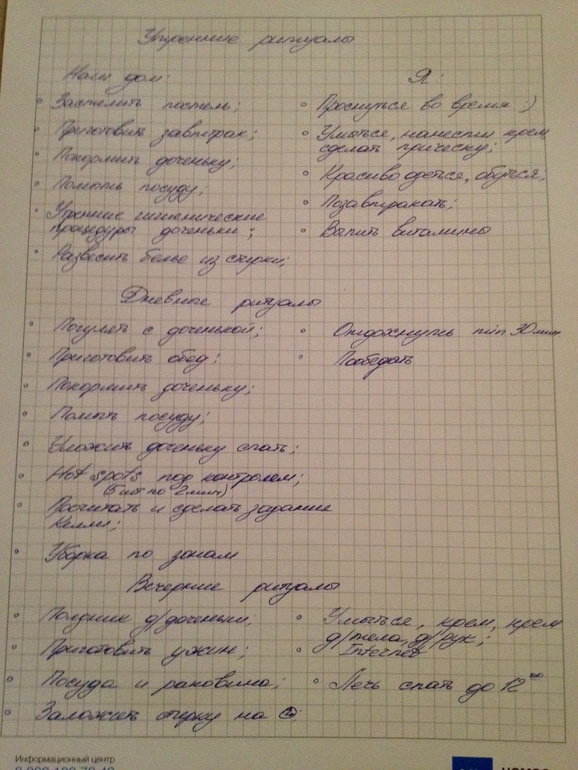 Утренние ритуалы
Наш дом:
Застелить постель;
Приготовить завтрак;
Покормить доченьку;
Помыть посуду;
Утренние гигиенические
процедуры доченьки;
Развесить белье из стирки;
Я:
Проснуться во время :)
Умыться, нанести крем,
сделать прическу;
Красиво одеться, обуться;
Позавтракать;
Выпить витамины
Дневные ритуалы
Погулять с доченькой;
Приготовить обед;
Покормить доченьку;
Помыть посуду;
Уложить доченьку спать;
Hot spots под контролем;
(5 шт по 2 мин)
Прочитать и сделать задания
Келли;
Уборка по зонам
Отдохнуть min 30 мин
Пообедать
Вечерние ритуалы
Полдник д/доченьки;
Приготовить ужин;
Посуда и раковина;
Заложить стирку на
Умыться, крем, крем
д/тела, д/рук;
Internet
Лечь спать до 12 00
Информационный центр